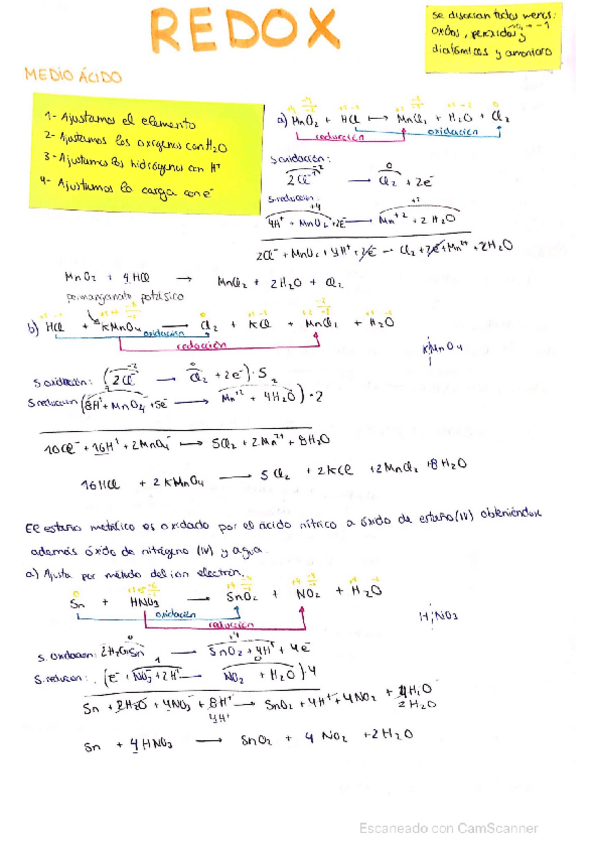 REDOX
se disocian todos menos:
óxidos, peróxidos y
diatómicos y amoniaco
MEDIO ÁCIDO
1- Ajustamos el elemento
2- Ajustamos los oxígenos con H₂O
3- Ajustamos los hidrógenos con H⁺
4- Ajustamos la carga con e⁻
a) MnO₂ + HCl → MnCl₂ + H₂O + Cl₂
reducción oxidación
S.oxidación:
2Cl⁻ → Cl₂ + 2e⁻
S.reducción:
4H⁺ + MnO₂ + 2e⁻ → Mn⁺² + 2H₂O
2Cl⁻ + MnO₂ + 4H⁺ + 2e⁻ → Cl₂ + 2e⁻ + Mn²⁺ + 2H₂O
MnO₂ + 4HCl → MnCl₂ + 2H₂O + Cl₂
permanganato potásico
b) HCl + KMnO₄ → Cl₂ + KCl + MnCl₂ + H₂O
oxidación
reducción
KMnO₄
S.oxidación: (2Cl⁻ → Cl₂ + 2e⁻)·5
S.reducción (8H⁺ + MnO₄⁻ + 5e⁻ → Mn⁺² + 4H₂O)·2
10Cl⁻ + 16H⁺ + 2MnO₄⁻ → 5Cl₂ + 2Mn²⁺ + 8H₂O
16HCl + 2KMnO₄ → 5Cl₂ + 2KCl + 2MnCl₂ + 8H₂O
El estaño metálico es oxidado por el ácido nítrico a óxido de estaño(IV) obteniéndose
además óxido de nitrógeno (IV) y agua.
a) Ajusta por método del ion electrón.
Sn + HNO₃ → SnO₂ + NO₂ + H₂O
oxidación
reducción
HNO₃
S. oxidación: 2H₂O + Sn → SnO₂ + 4H⁺ + 4e⁻
S.reducción: (e⁻ + NO₃⁻ + 2H⁺ → NO₂ + H₂O)·4
Sn + 2H₂O + 4NO₃⁻ + 8H⁺ → SnO₂ + 4H⁺ + 4NO₂ + 4H₂O
4H⁺ 2H₂O
Sn + 4HNO₃ → SnO₂ + 4NO₂ + 2H₂O
Escaneado con CamScanner